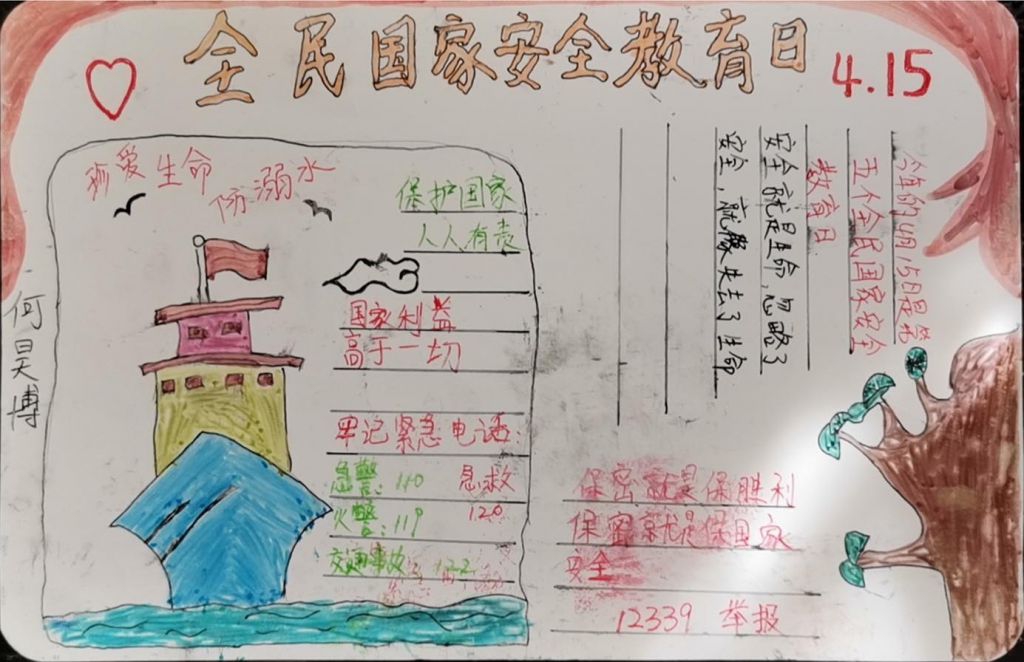 全民国家安全教育日
4.15
珍爱生命
防溺水
保护国家
人人有责
国家利益
高于一切
牢记紧急电话:
急警:110 急救
火警:119 120
交通事故 122
今年的4月15日是第
五个全民国家安全
教育日
安全就是生命,忽略了
安全,就像失去了生命
保密就是保胜利
保密就是保国家
安全
12339 举报
何昊博